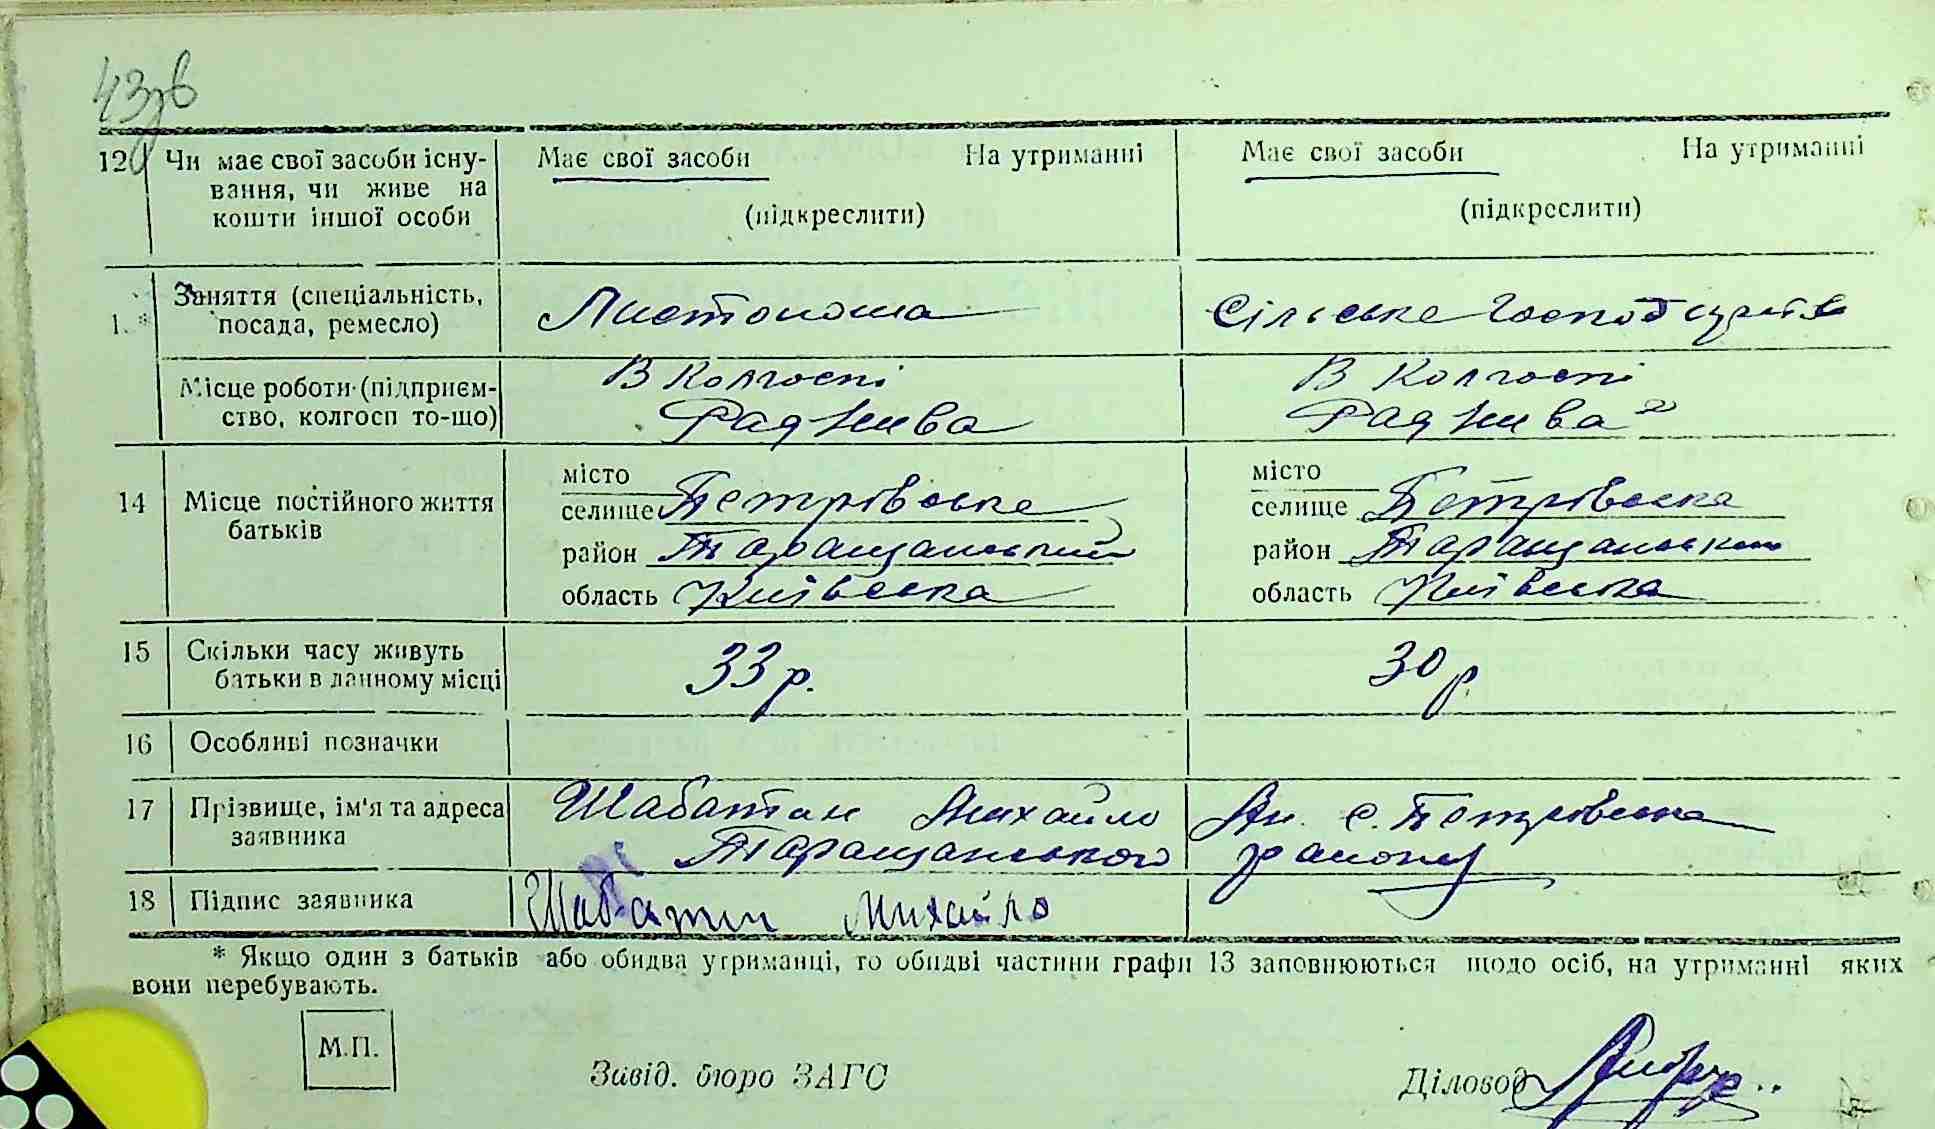 43зв
12 Чи має свої засоби існу- Має свої засоби На утриманні Має свої засоби На утриманні
вання, чи живе на
кошти іншої особи (підкреслити) (підкреслити)
1. * Заняття (спеціальність, Листоноша Сільське господарство
посада, ремесло)
Місце роботи (підприєм- В Колгоспі В Колгоспі
ство, колгосп то-що) Рад Нива Рад Нива
14 Місце постійного життя місто місто
батьків селище Петрівська селище Петрівська
район Таращанський район Таращанський
область Київська область Київська
15 Скільки часу живуть 33 р. 30 р
батьки в данному місці
16 Особливі позначки
17 Прізвище, ім'я та адреса Шабатин Михайло с. Петрівська
заявника Таращанського району
18 Підпис заявника Шабатин Михайло
* Якщо один з батьків або обидва утриманці, то обидві частини графи 13 заповнюються щодо осіб, на утриманні яких
вони перебувають.
М.П.
Завід. бюро ЗАГС Діловод